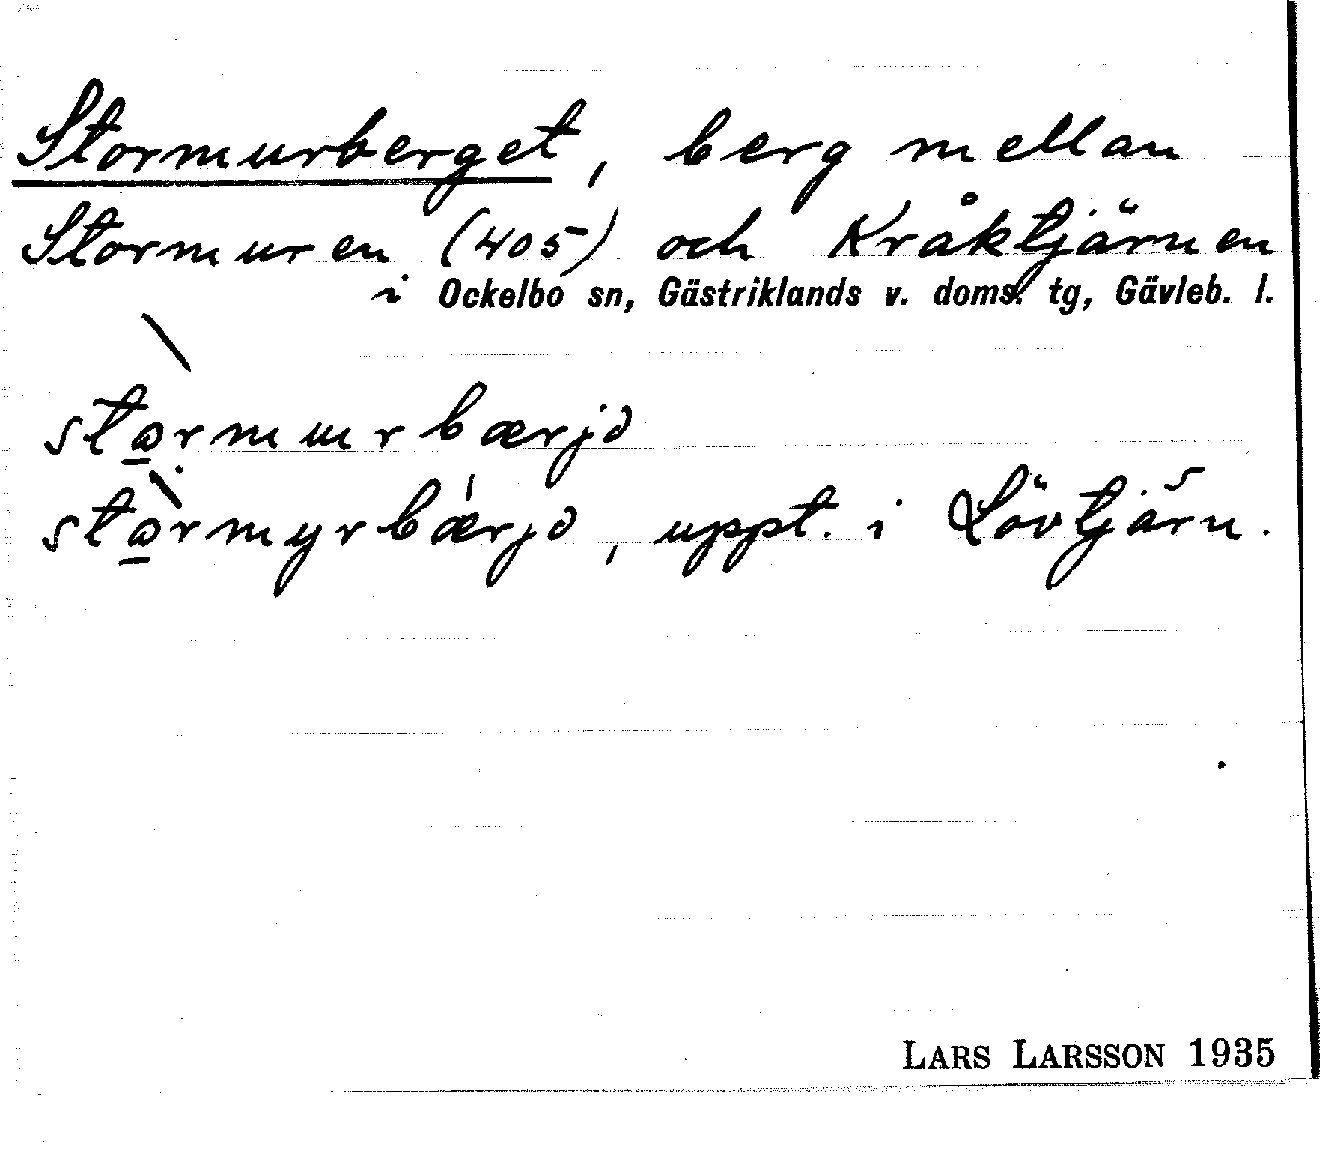 Stormurberget, berg mellan
Stormuren (405) och Kråktjärnen
i Ockelbo sn, Gästriklands v. doms. tg, Gävleb. l.
stòrmurbærjə
stòrmyrbǽrjə, uppt. i Lövtjärn.
LARS LARSSON 1935